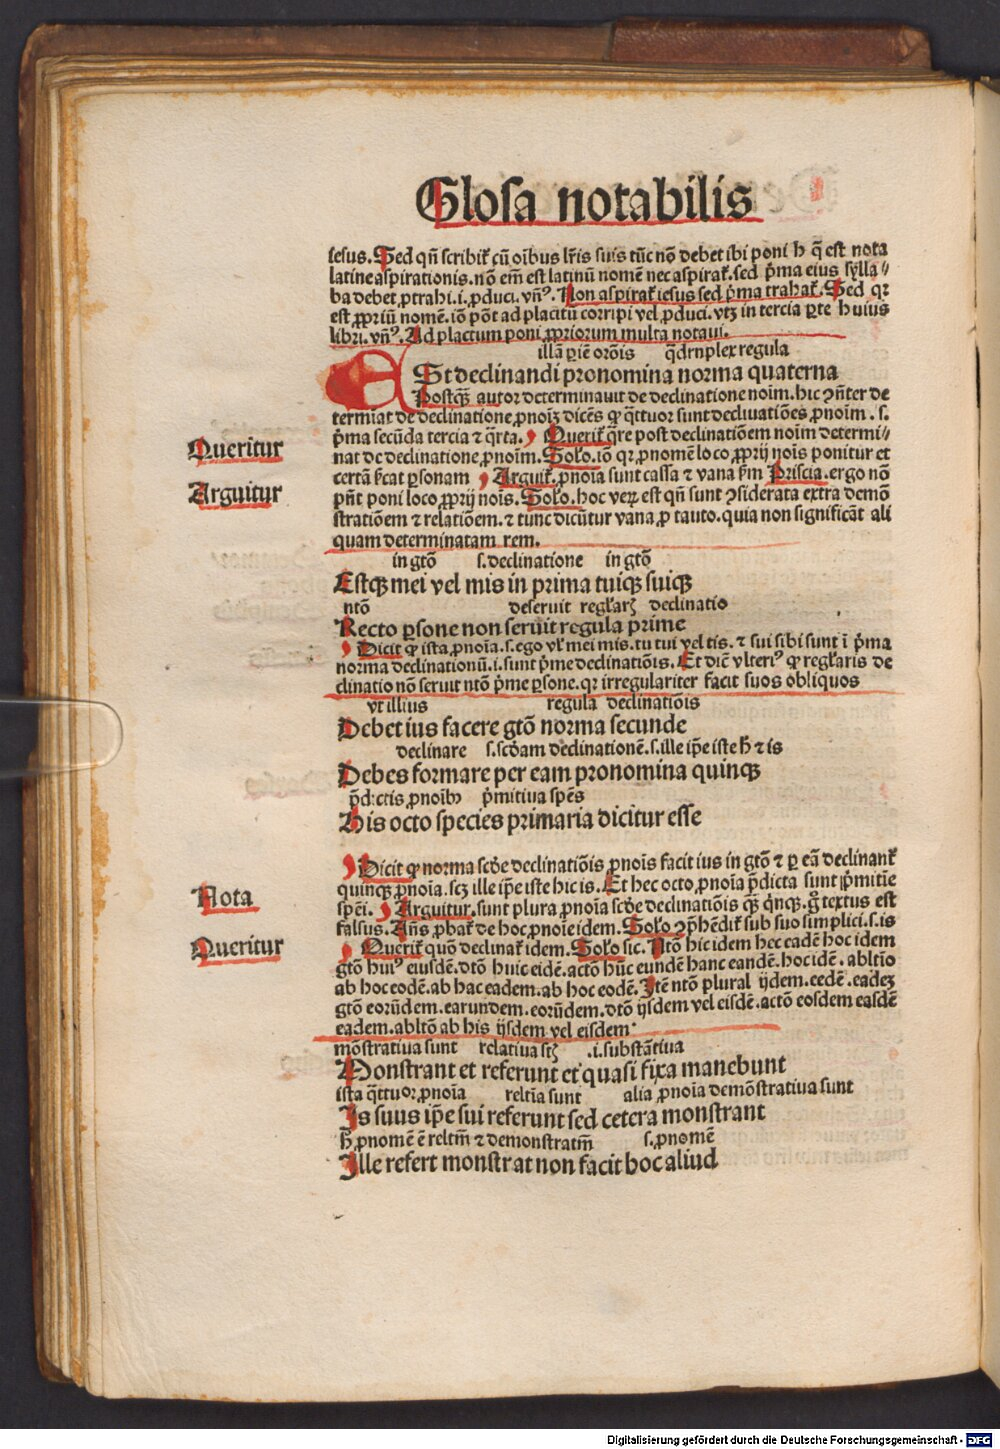 Glosa notabilis
iesus. Sed qñ scribit̃ cũ oĩbus lr̃is suis tũc nõ debet ibi poni h q̃ est nota
latine aspirationis. nõ em̃ est latinũ nomẽ nec aspirat̃. sed p̃ma eius sylla⸗
ba debet ꝓtrahi .i. ꝓduci. vñ⁹. Non aspirat̃ iesus sed p̃ma trahat̃. Sed qꝛ
est ꝓpriũ nomẽ. iõ põt ad placitũ corripi vel ꝓduci. vtꝫ in tercia ꝑte huius
libri. vñ⁹. Ad placitum poni ꝓpriorum multa notaui.
illã ꝑiẽ orõis q̃drnplex regula
ESt declinandi pronomina norma quaterna
Postq̃ꝫ autor determinauit de declinatione noĩm. hic ꝯñter de
termiat de declinatione ꝓnoiꝫ dicẽs ꝙ q̃ttuor sunt declinatiões ꝓnoĩm .s.
Queritur
p̃ma secũda tercia ⁊ q̃rta. Querit̃ q̃re post declinatiõem noĩm determi⸗
nat de declinatione ꝓnoĩm. Solo. iõ qꝛ ꝓnomẽ loco ꝓprij noĩs ponitur et
Arguitur
certã ẜcat ꝑsonam Arguit̃. ꝓnoĩa sunt cassa ⁊ vana ẜm Priscia. ergo nõ
pñt poni loco ꝓprij noĩs. Solo. hoc veꝝ est qñ sunt ꝯsiderata extra demõ
stratiõem ⁊ relatiõem. ⁊ tunc dicũtur vana ꝓ tauto. quia non significãt ali
quam determinatam rem.
in gtõ s. declinatione in gtõ
Estqꝫ mei vel mis in prima tuiqꝫ suiqꝫ
ntõ deseruit reglarꝭ declinatio
Recto ꝑsone non seruit regula prime
Dicit ꝙ ista ꝓnoĩa .s. ego vl̃ mei mis. tu tui vel tis. ⁊ sui sibi sunt ĩ p̃ma
norma declinationũ .i. sunt p̃me declinatiõis. Et diẽ vlteri⁹ ꝙ regl̃aris de
clinatio nõ seruit ntõ p̃me ꝑsone. qꝛ irregulariter facit suos obliquos
vt illius regula declinatiõis
Debet ius facere gtõ norma secunde
declinare s. scd̃am declinationẽ .s. ille ip̃e iste h̃ ⁊ is
Debes formare per eam pronomina quinqꝫ
p̃dictis ꝓnoĩbꝫ p̃mitiua sp̃es
His octo species primaria dicitur esse
Dicit ꝙ norma scd̃e declinatiõis ꝓnoĩs facit ius in gtõ ⁊ ꝑ eã declinant̃
quinqꝫ ꝓnoĩa. scꝫ ille ip̃e iste hic is. Et hec octo ꝓnoĩa p̃dicta sunt p̃mitiẽ
Nota
sp̃ei. Arguitur. sunt plura ꝓnoĩa scd̃e declinatiõis q̃ꝫ q̃nqꝫ. g̃ textus est
falsus. Añs ꝓbat̃ de hoc ꝓnoĩe idem. Solo ꝯp̃hẽdit̃ sub suo simplici .s. is
Queritur
Querit̃ quõ declinat̃ idem. Solo sic. Ntõ hic idem hec eadẽ hoc idem
gtõ hui⁹ eiusdẽ. dtõ huic eidẽ. actõ hũc eundẽ hanc eandẽ. hoc idẽ. abltĩo
ab hoc eodẽ. ab hac eadem. ab hoc eodẽ. Itẽ ntõ plural ijdem. eedẽ. eadeꝫ
gtõ eorũdem. earundem. eorũdem. dtõ ijsdem vel eisdẽ. actõ eosdem easdẽ
eadem. abltõ ab his ijsdem vel eisdem
mõstratiua sunt relatiua stꝫ .i. substãtiua
Monstrant et referunt et quasi fixa manebunt
ista q̃ttuoꝛ ꝓnoĩa reltĩa sunt alia ꝓnoĩa demõstratiua sunt
Is suus ip̃e sui referunt sed cetera monstrant
h̃ ꝓnomẽ ẽ reltm̃ ⁊ demonstratm̃ s. ꝓnomẽ
Ille refert monstrat non facit hoc aliud
Digitalisierung gefördert durch die Deutsche Forschungsgemeinschaft - DFG